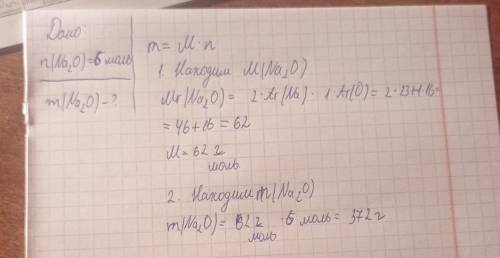 Дано:
n(Na₂O)=6 моль
m(Na₂O)-?
m= M·n
1. Находим M(Na₂O)
Mr(Na₂O)= 2·Ar(Na)·1·Ar(O)=2·23+1·16=
=46+16=62
M=62 г/моль
2. Находим m(Na₂O)
m(Na₂O)= 62 г/моль ·6 моль= 372 г